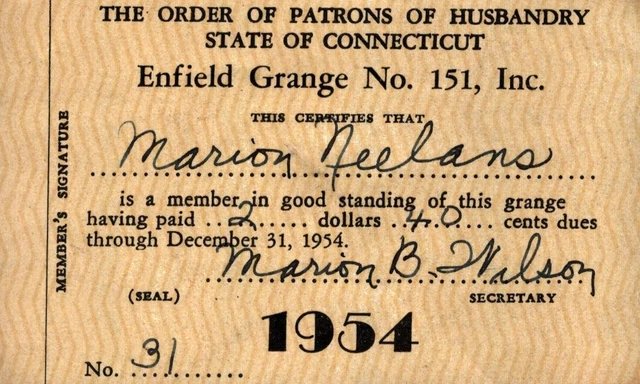 THE ORDER OF PATRONS OF HUSBANDRY
STATE OF CONNECTICUT
Enfield Grange No. 151, Inc.
THIS CERTIFIES THAT
Marion Neelans
is a member in good standing of this grange
having paid ..2..... dollars ..40.... cents dues
through December 31, 1954.
Marion B. Wilson
(SEAL) SECRETARY
1954
No. 31
MEMBER'S SIGNATURE